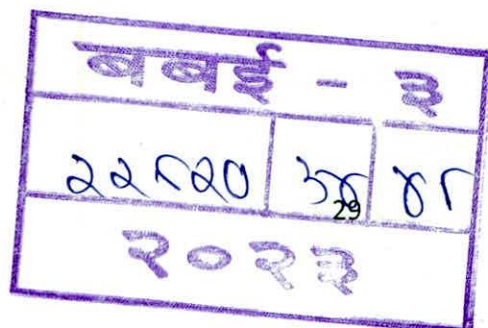 बबई - ३
२२८२० ३४ ४८
29
२०२३